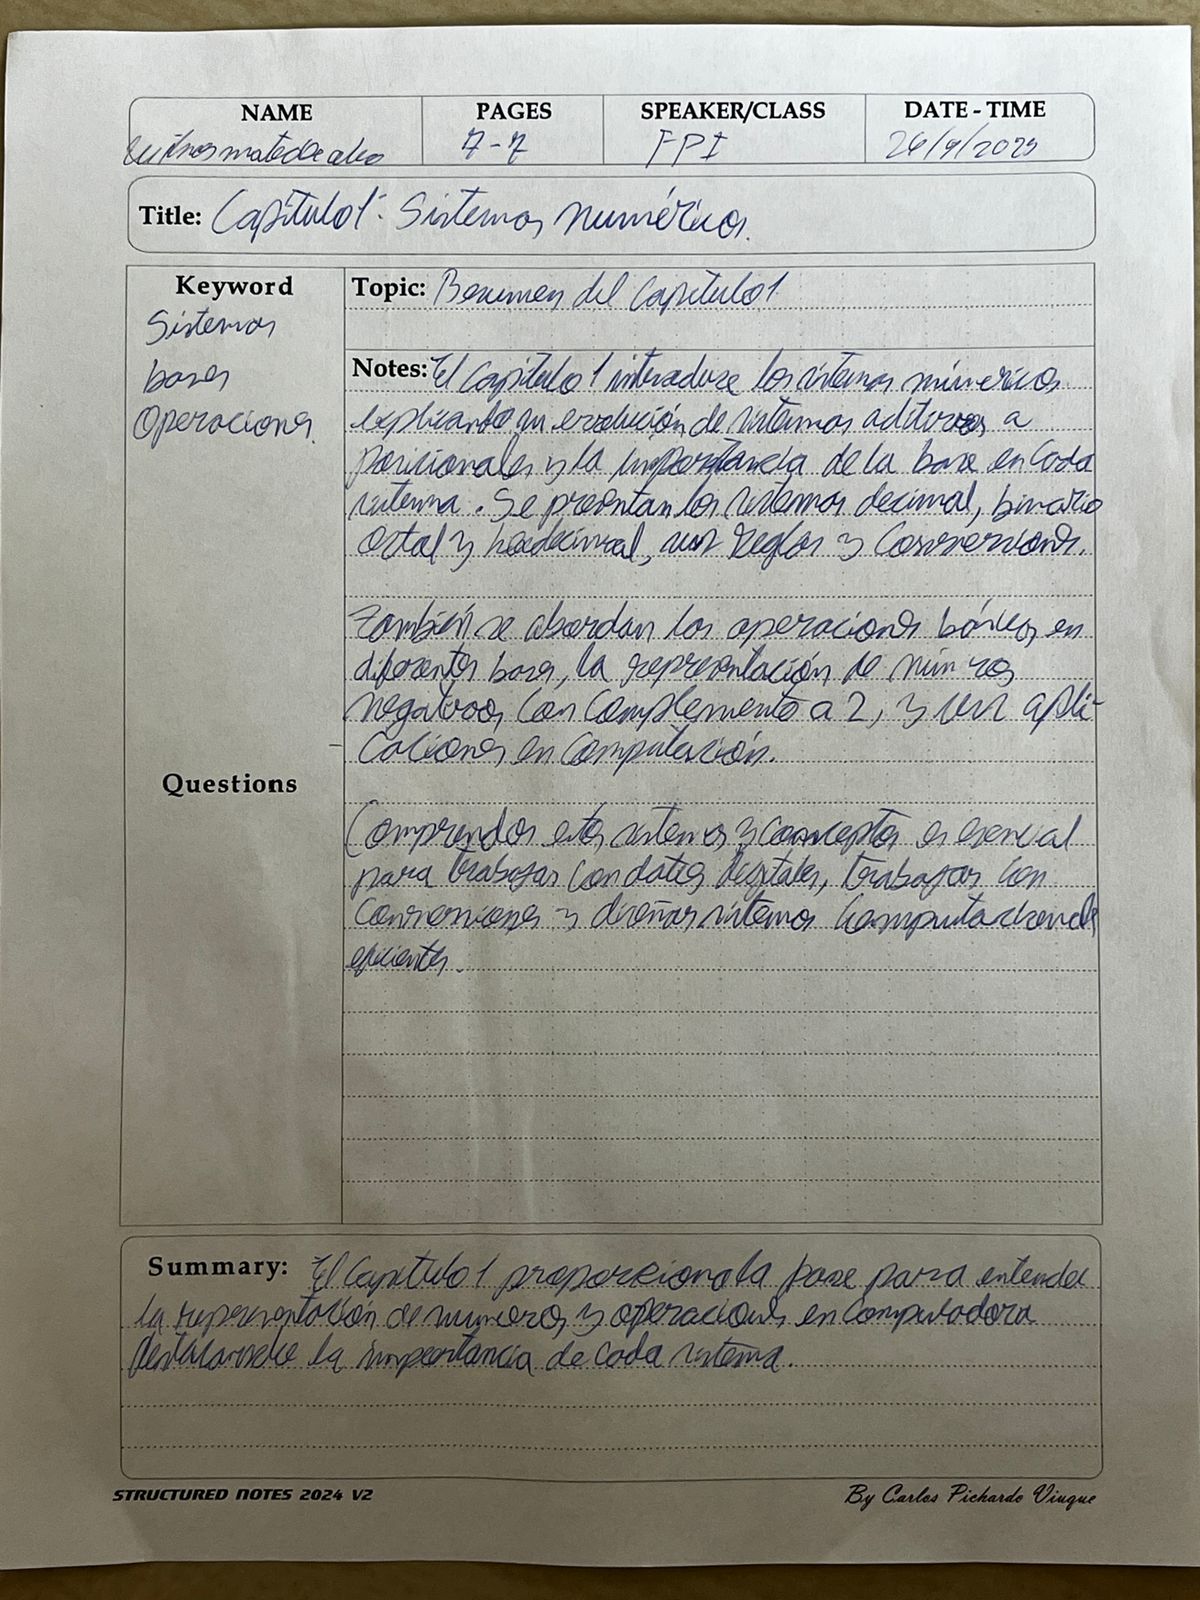 NAME PAGES SPEAKER/CLASS DATE - TIME
7-7 FPI 26/9/2025
Title: Capítulo 1: Sistemas numéricos.
Keyword
Sistemas
bases
Operaciones.
Topic: Resumen del Capítulo 1
Notes: El Capítulo 1 introduce los sistemas númericos
explicando su evolución de sistemas aditivos a
posicionales y la importancia de la base en cada
sistema. Se presentan los sistemas decimal, binario
octal y hexadecimal, sus reglas y conversiones.
También se abordan las operaciones básicas en
diferentes bases, la representación de números
negativos con complemento a 2, y sus apli-
caciones en computación.
Questions
Comprender estos sistemas y conceptos es esencial
para trabajar con datos digitales, trabajar con
conversiones y diseñar sistemas computacionales
eficientes.
Summary: El Capítulo 1 proporciona la base para entender
la representación de números y operaciones en computadora
la importancia de cada sistema.
STRUCTURED NOTES 2024 V2
By Carlos Pichardo Viuque